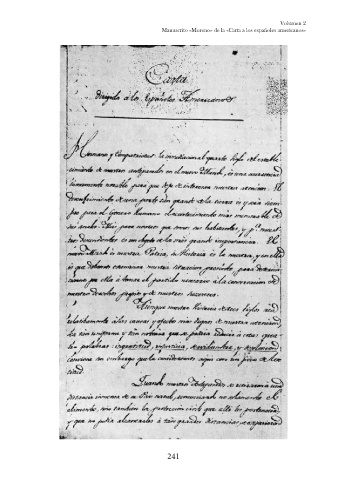 Volumen 2
Manuscrito «Moreno» de la «Carta a los españoles americanos»
Carta
dirigida a los Españoles Americanos
Hermanos y Compatriotas: la inmediacion al quarto siglo del estable-
cimiento de nuestros antepasados en el nuevo Mundo, es una ocurrencia
sumamente notable para que deje de interesar nuestra atencion. El
descubrimiento de una parte tan grande de la tierra es y será siem-
pre para el genero humano el acontecimiento mas memorable de
sus anales. Mas para nosotros que somos sus habitantes, y p.ª nues-
tros descendientes es un objeto de la mas grande importancia. El
nuevo Mundo es nuestra Patria, su Historia es la nuestra, y en ella
es que debemos examinar nuestra situacion presente, para determi-
narnos por ella á tomar el partido necesario a la conservacion de
nuestros derechos propios y de nuestros succesores.
Aunque nuestra Historia de tres siglos acá
relativamente á las causas y efectos mas dignos de nuestra atencion,
sea tan uniforme y tan notoria que se podria reducir á estas quatro
palabras ingratitud, injusticia, servidumbre, y desolacion
conviene sin embargo que la consideremos aqui con un poco de len-
titud.
Quando nuestros Antepasados se retiraron a una
distancia inmensa de su Pais natal, renunciando no solamente al
alimento, sino tambien la proteccion civil que alli les pertenecia
y que no podia alcanzarles á tan grandes distancias, se expusieron
241